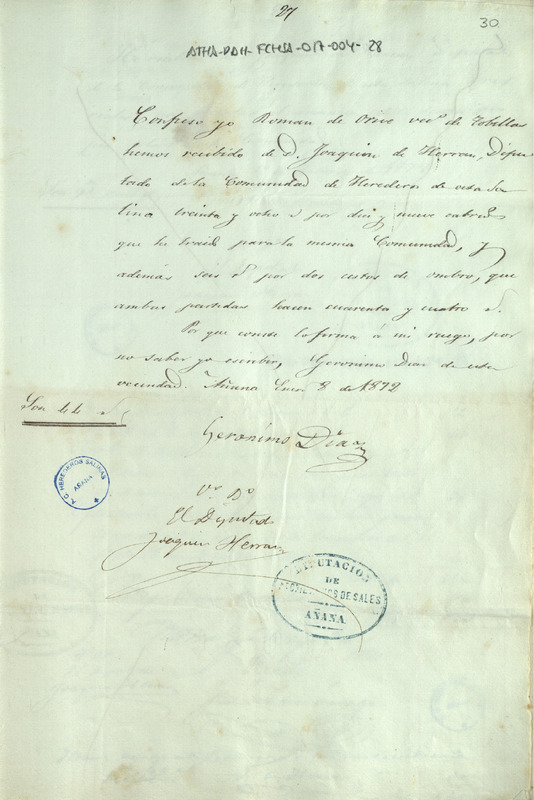 27
30
ATHA-DAH-FCHSA-017-004-28
Confieso yo Roman de Orive vecº de Tobillas
hemos recibido de D. Joaquin de Herran, Dipu
tado de la Comunidad de Herederos de esta Sa
lina treinta y ocho rˢ por diez y nueve cabrios
que he traido para la misma Comunidad, y
además seis rˢ por dos cestos de ombro, que
ambas partidas hacen cuarenta y cuatro rˢ.
Por que conste lo firma á mi ruego, por
no saber yo escribir, Geronimo Diaz de esta
vecindad. Añana Enero 8 de 1872
Son 44 rˢ
Geronimo Diaz
Vº Bº
El Diputado
Joaquin Herran
A.C. HEREDEROS SALINAS
AÑANA
DIPUTACION
DE
DE SALES
AÑANA